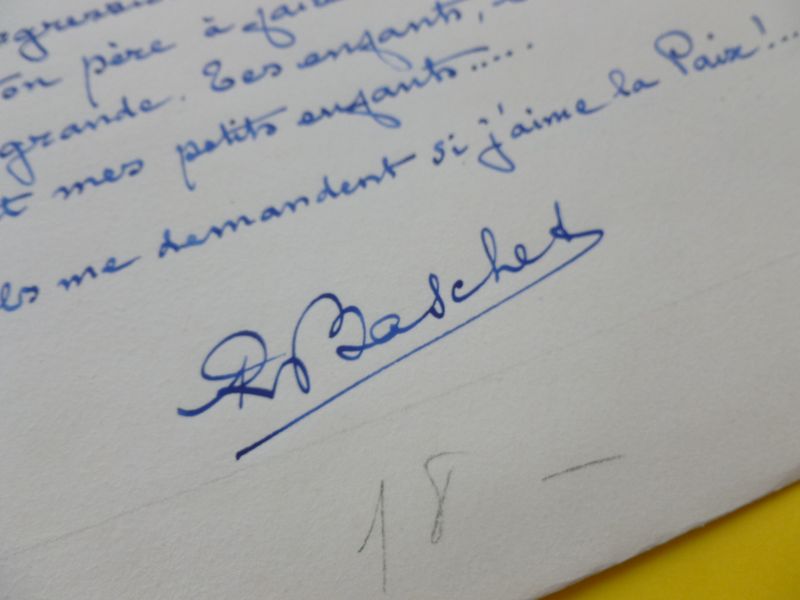 on père à fai
grande. Tes enfants,
t mes petits enfants.....
ls me demandent si j'aime la Paix!...
R Baschet
18 —